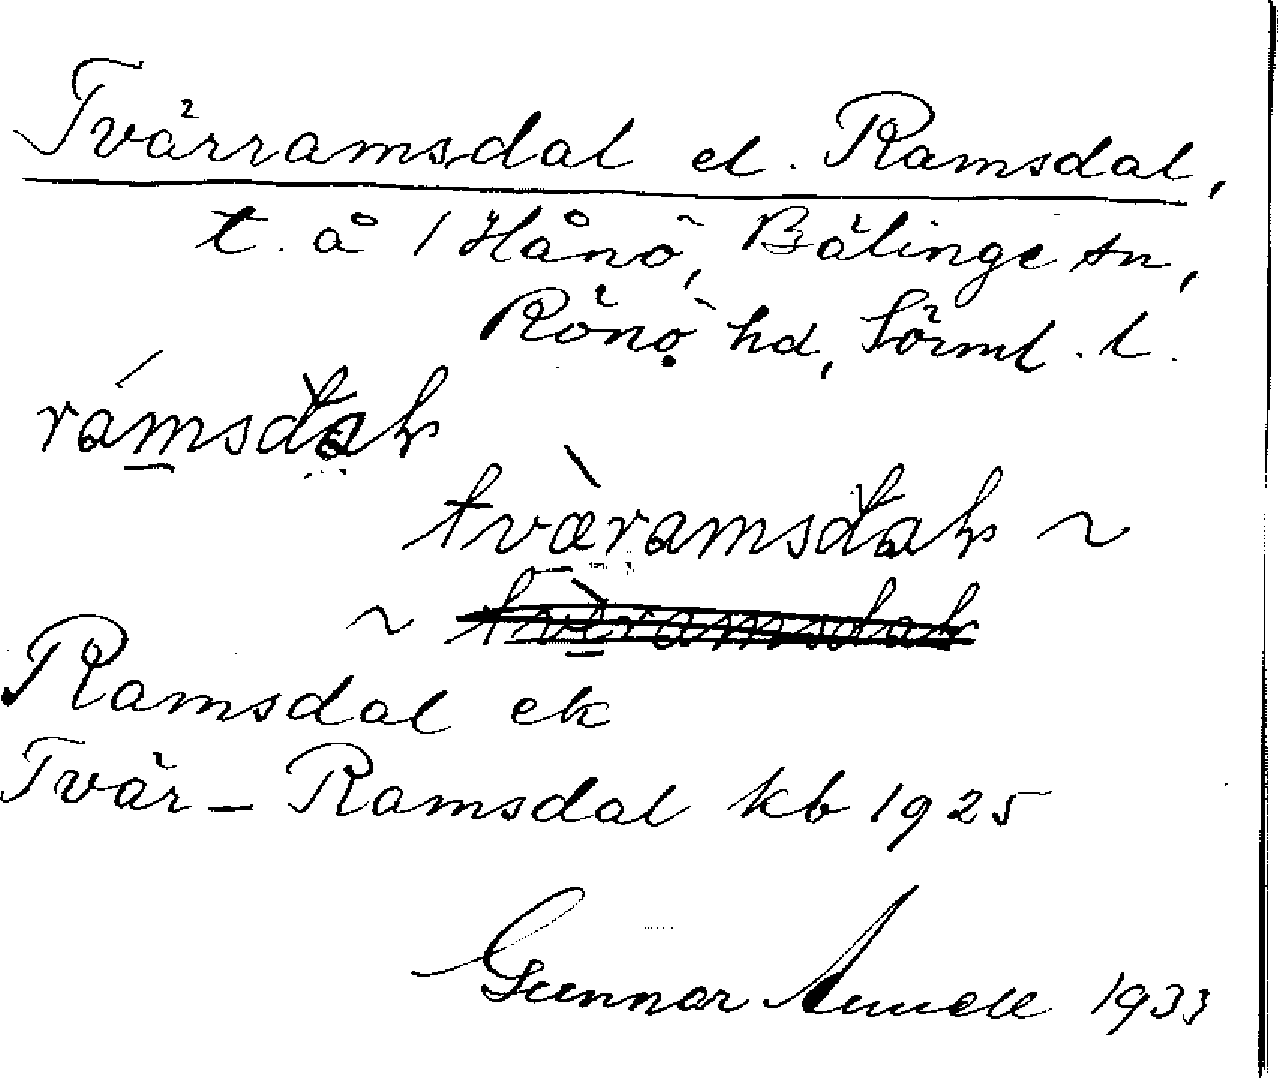 Tvärramsdal el. Ramsdal,
t. å / Hånö, Bälinge sn,
Rönö hd, Sörml. l.
rámsdal
tvæ̀ramsdal ~
~
Ramsdal ek
Tvär-Ramsdal kb 1925
Gunnar 1933